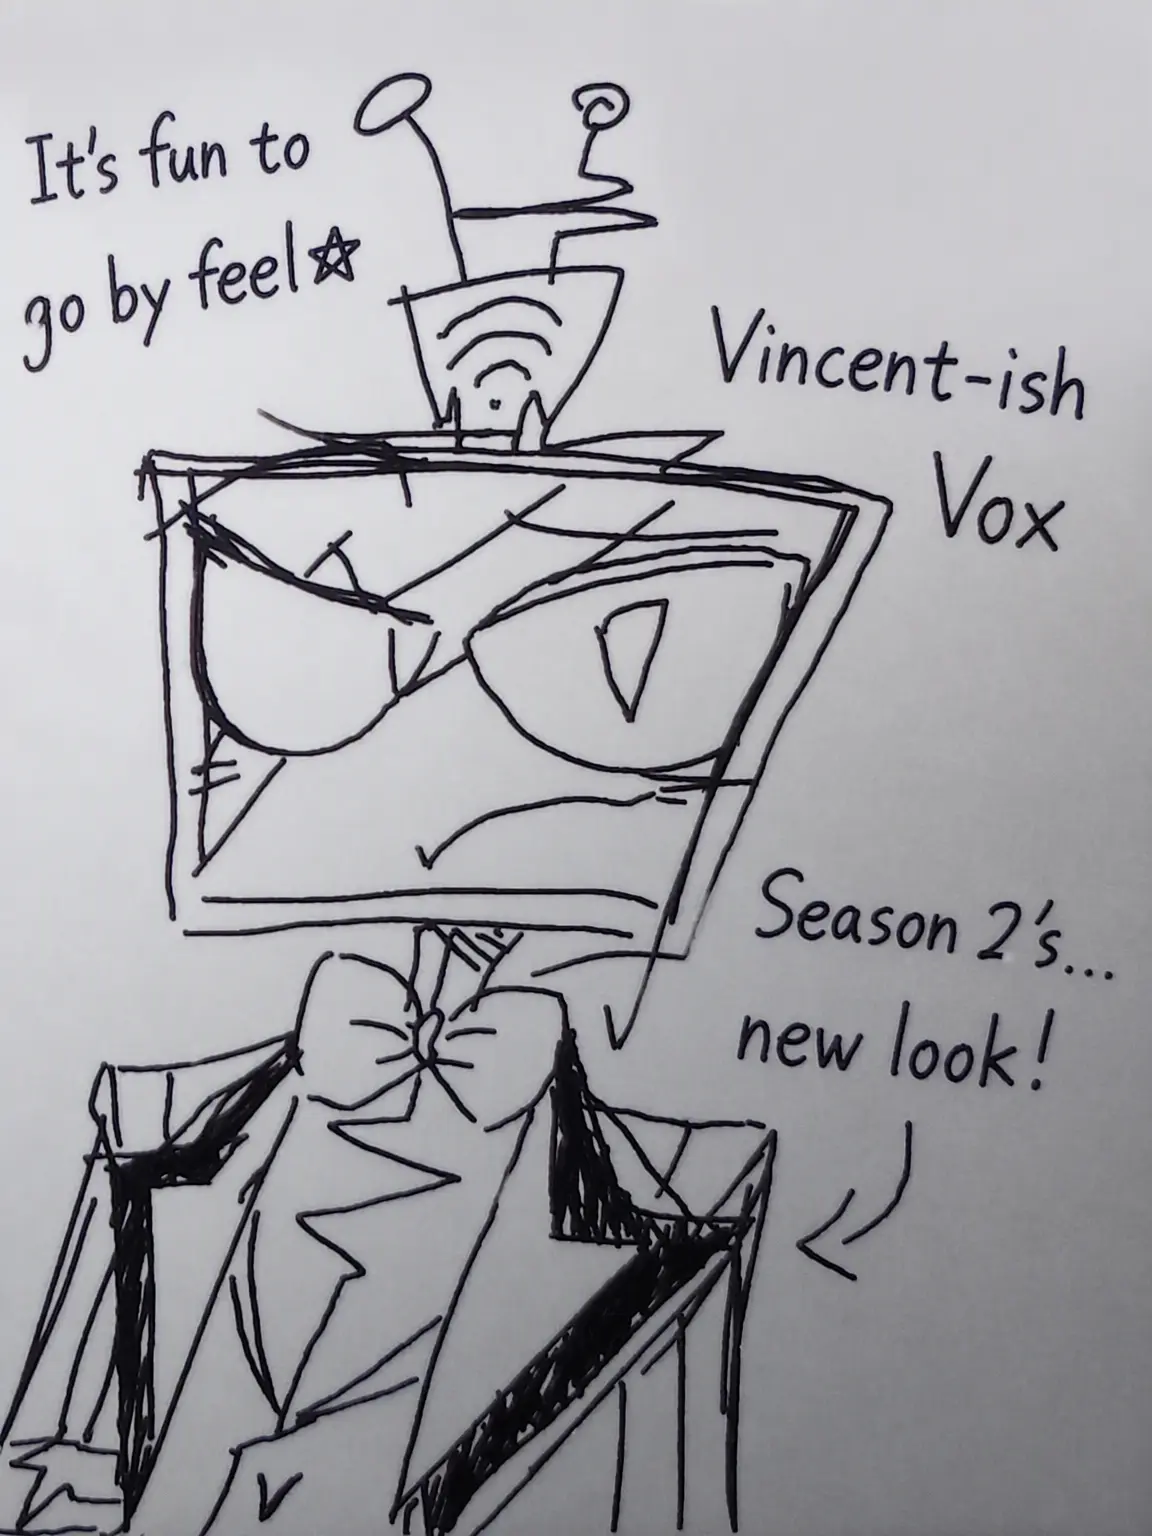 It's fun to
go by feel☆
Vincent-ish
Vox
Season 2's...
new look!